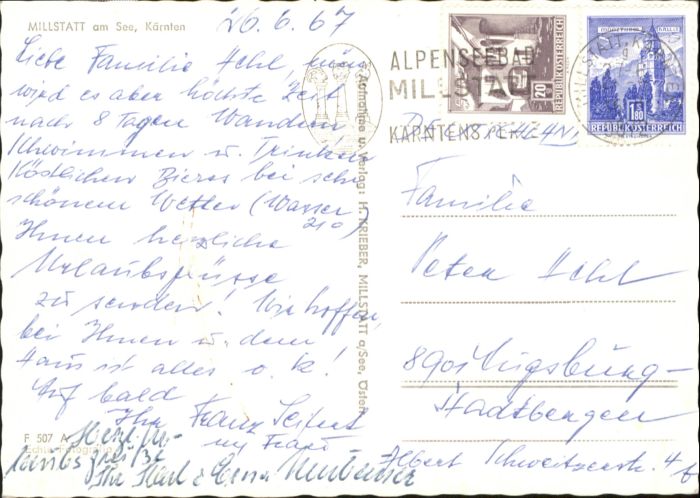 MILLSTATT am See, Kärnten
26.6.67
Liebe Familie Hehl, nun
wird es aber höchste Zeit
nach 8 Tagen Wandern
Schwimmen u. Trinken
Köstlichen Bieres bei sehr
schönem Wetter (Wasser
21°)
Ihnen herzliche
Urlaubsgrüsse
zu senden! Wir hoffen,
bei Ihnen u. dem
Haus ist alles o.k!
Auf bald
Ihr Franz Seifert
u Frau
Herzl. Ur-
laubsgrüße
Ihr Karl
F 507 A
Aufnahme u. Verlag: H. KRIEBER, MILLSTATT a/See, Österr.
ALPENSEEBAD
MILLSTATT
KÄRNTENS PERLE
20
REPUBLIK ÖSTERREICH
1.80
REPUBLIK ÖSTERREICH
Familie
Peter Hehl
8901 Augsburg-
Stadtbergen
Albert Schweitzerstr. 4